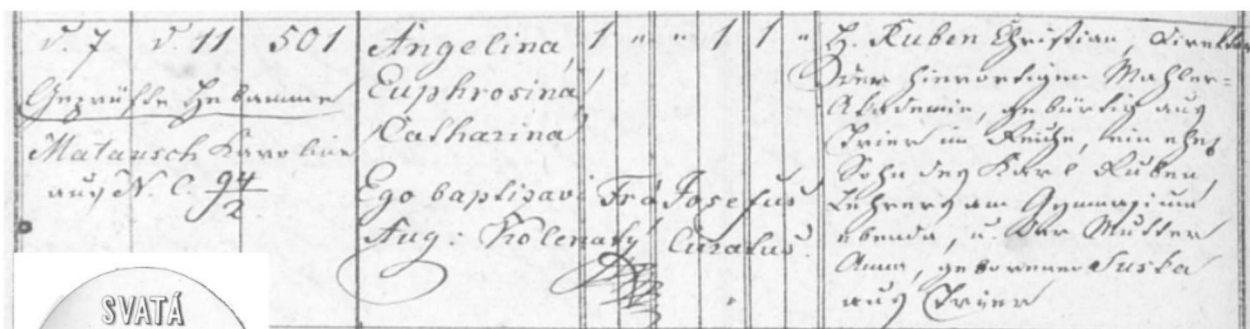 d. 7 d. 11 501
Geprüfte Hebamme
Matausch Karoline
aus N. C. 94/2
Angelina,
Euphrosina,
Catharina
Ego baptisavi Fra Josefus
Aug: Kolenatý Curatus
1 " " 1 1 "
H. Ruben Christian, Direktor
der hierortigen Mahler-
Akademie, gebürtig aus
Trier im Reiche, ein ehel.
Sohn des Karl Ruben,
Lehrers am Gymnasium
ebenda, u. der Mutter
Anna, geborener Suska
aus Trier
SVATÁ